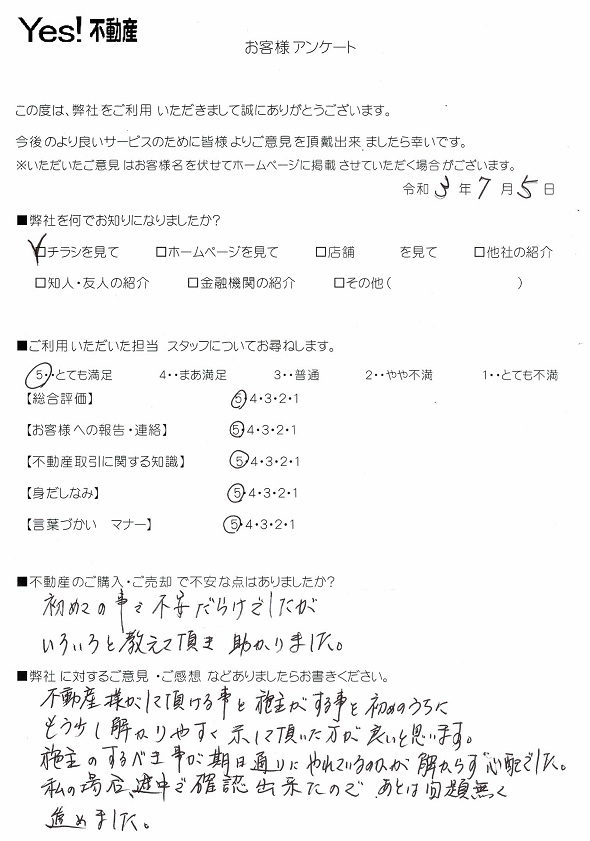 Yes!不動産
お客様アンケート
この度は、弊社をご利用いただきまして誠にありがとうございます。
今後のより良いサービスのために皆様よりご意見を頂戴出来ましたら幸いです。
※いただいたご意見はお客様名を伏せてホームページに掲載させていただく場合がございます。
令和 3 年 7 月 5 日
■弊社を何でお知りになりましたか?
☑チラシを見て □ホームページを見て □店舗 を見て □他社の紹介
□知人・友人の紹介 □金融機関の紹介 □その他( )
■ご利用いただいた担当 スタッフについてお尋ねします。
5・・とても満足 4・・まあ満足 3・・普通 2・・やや不満 1・・とても不満
【総合評価】 5・4・3・2・1
【お客様への報告・連絡】 5・4・3・2・1
【不動産取引に関する知識】 5・4・3・2・1
【身だしなみ】 5・4・3・2・1
【言葉づかい マナー】 5・4・3・2・1
■不動産のご購入・ご売却で不安な点はありましたか?
初めての事で不安だらけでしたが
いろいろと教えて頂き助かりました。
■弊社に対するご意見・ご感想などありましたらお書きください。
不動産様がして頂ける事と施主がする事を初めのうちに
もう少し解かりやすく示して頂いた方が良いと思います。
施主のするべき事が期日通りにやれているのかが解からず心配でした。
私の場合、途中で確認出来たので あとは問題無く
進めました。